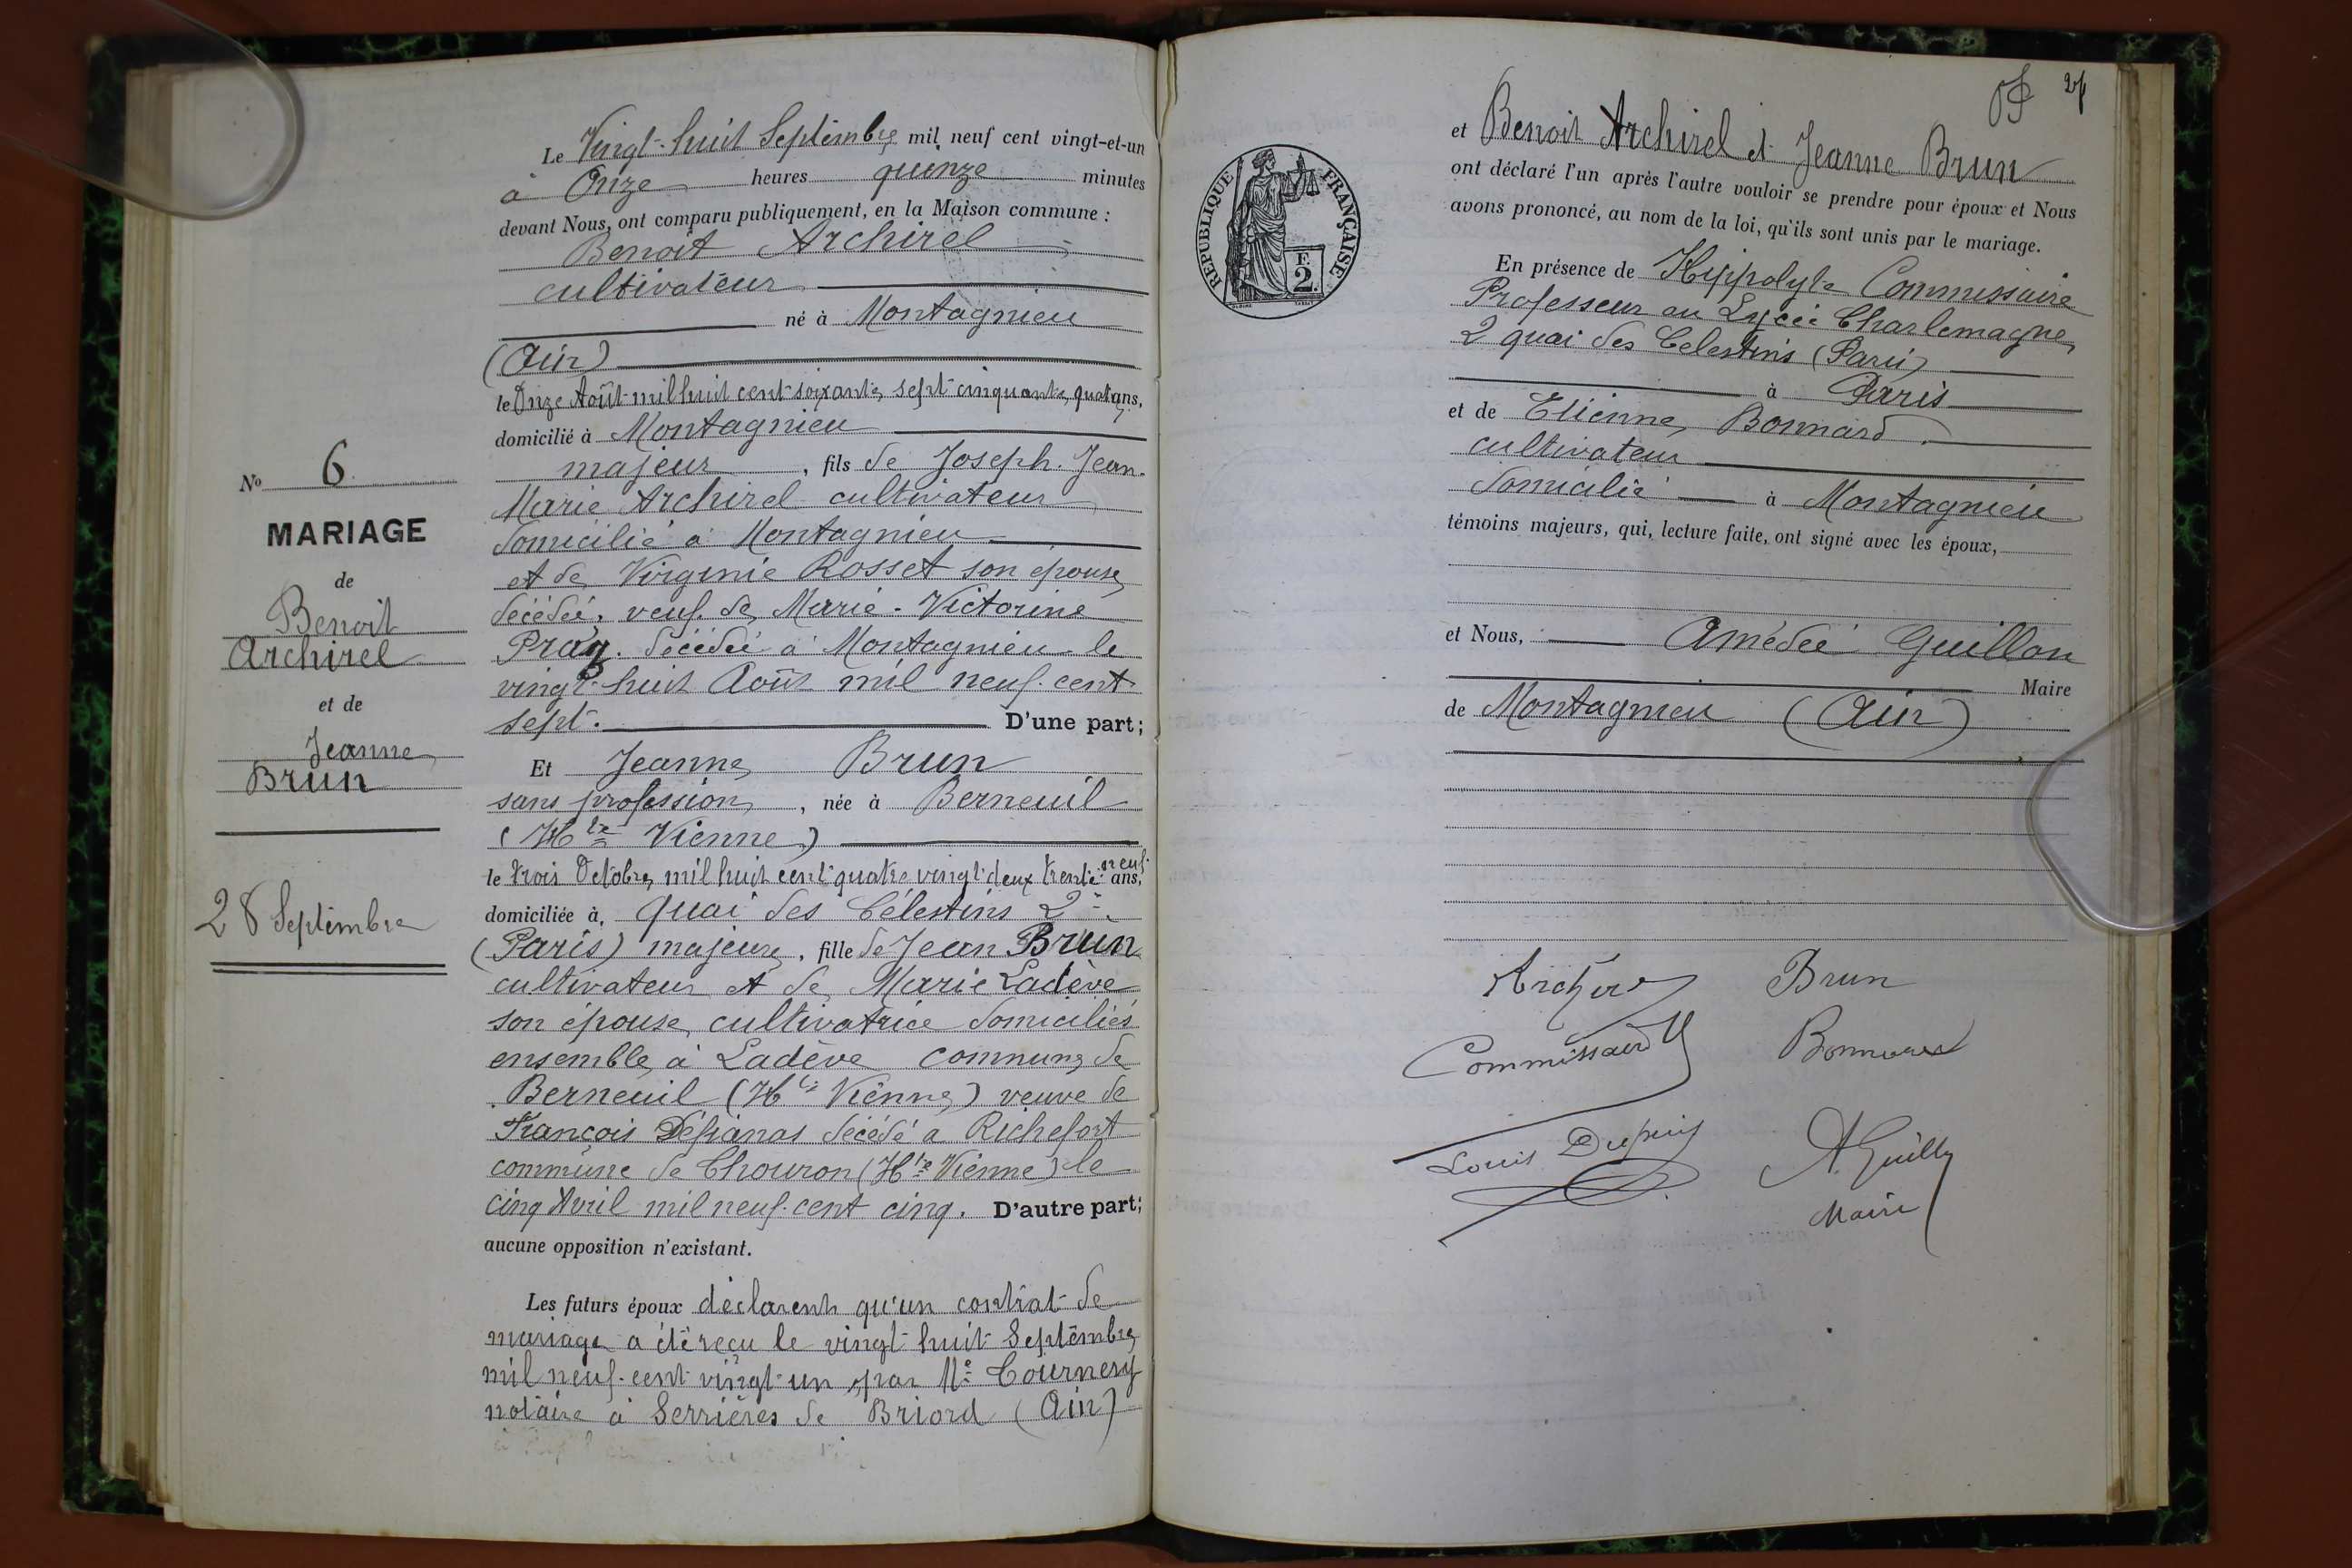 Le Vingt-huit Septembre mil neuf cent vingt-et-un
à Onze heures quinze minutes
devant Nous, ont comparu publiquement, en la Maison commune :
Benoit Archirel
cultivateur
né à Montagnieu
(Ain)
le Onze Août mil huit cent soixante sept cinquante quatre ans,
domicilié à Montagnieu
majeur, fils de Joseph-Jean-
Marie Archirel cultivateur
domicilié à Montagnieu
et de Virginie Rosset son épouse
décédée, veuf de Marie-Victorine
décédée à Montagnieu le
vingt-huit Août mil neuf cent
sept. D'une part;
Et Jeanne Brun
sans profession, née à Berneuil
(Hte Vienne)
le trois Octobre mil huit cent quatre vingt deux trente neuf ans,
domiciliée à quai des Célestins 2
(Paris) majeure, fille de Jean Brun
cultivateur et de Marie Ladève
son épouse cultivatrice domiciliés
ensemble à Ladève commune de
Berneuil (Hte Vienne) veuve de
François décédé a Richefort
commune de Chouron (Hte Vienne) le
cinq Avril mil neuf cent cinq. D'autre part;
aucune opposition n'existant.
Les futurs époux déclarent qu'un contrat de
mariage a été reçu le vingt huit Septembre
mil neuf cent vingt un par Me
notaire à Serrières de Briord (Ain)
No 6.
MARIAGE
de
Benoit
Archirel
et de
Jeanne
Brun
28 Septembre
et Benoit Archirel et Jeanne Brun
ont déclaré l'un après l'autre vouloir se prendre pour époux et Nous
avons prononcé, au nom de la loi, qu'ils sont unis par le mariage.
REPUBLIQUE FRANÇAISE
F.
2.
En présence de Hippolyte Commissaire
Professeur au Lycée Charlemagne
2 quai des Celestins (Paris)
à Paris
et de Etienne Bonnard.
cultivateur
domicilié à Montagnieu
témoins majeurs, qui, lecture faite, ont signé avec les époux,
et Nous, Amédée Guillon
Maire
de Montagnieu (Ain)
Brun
Commissaire
Bonnard
Louis Dupuis
Maire